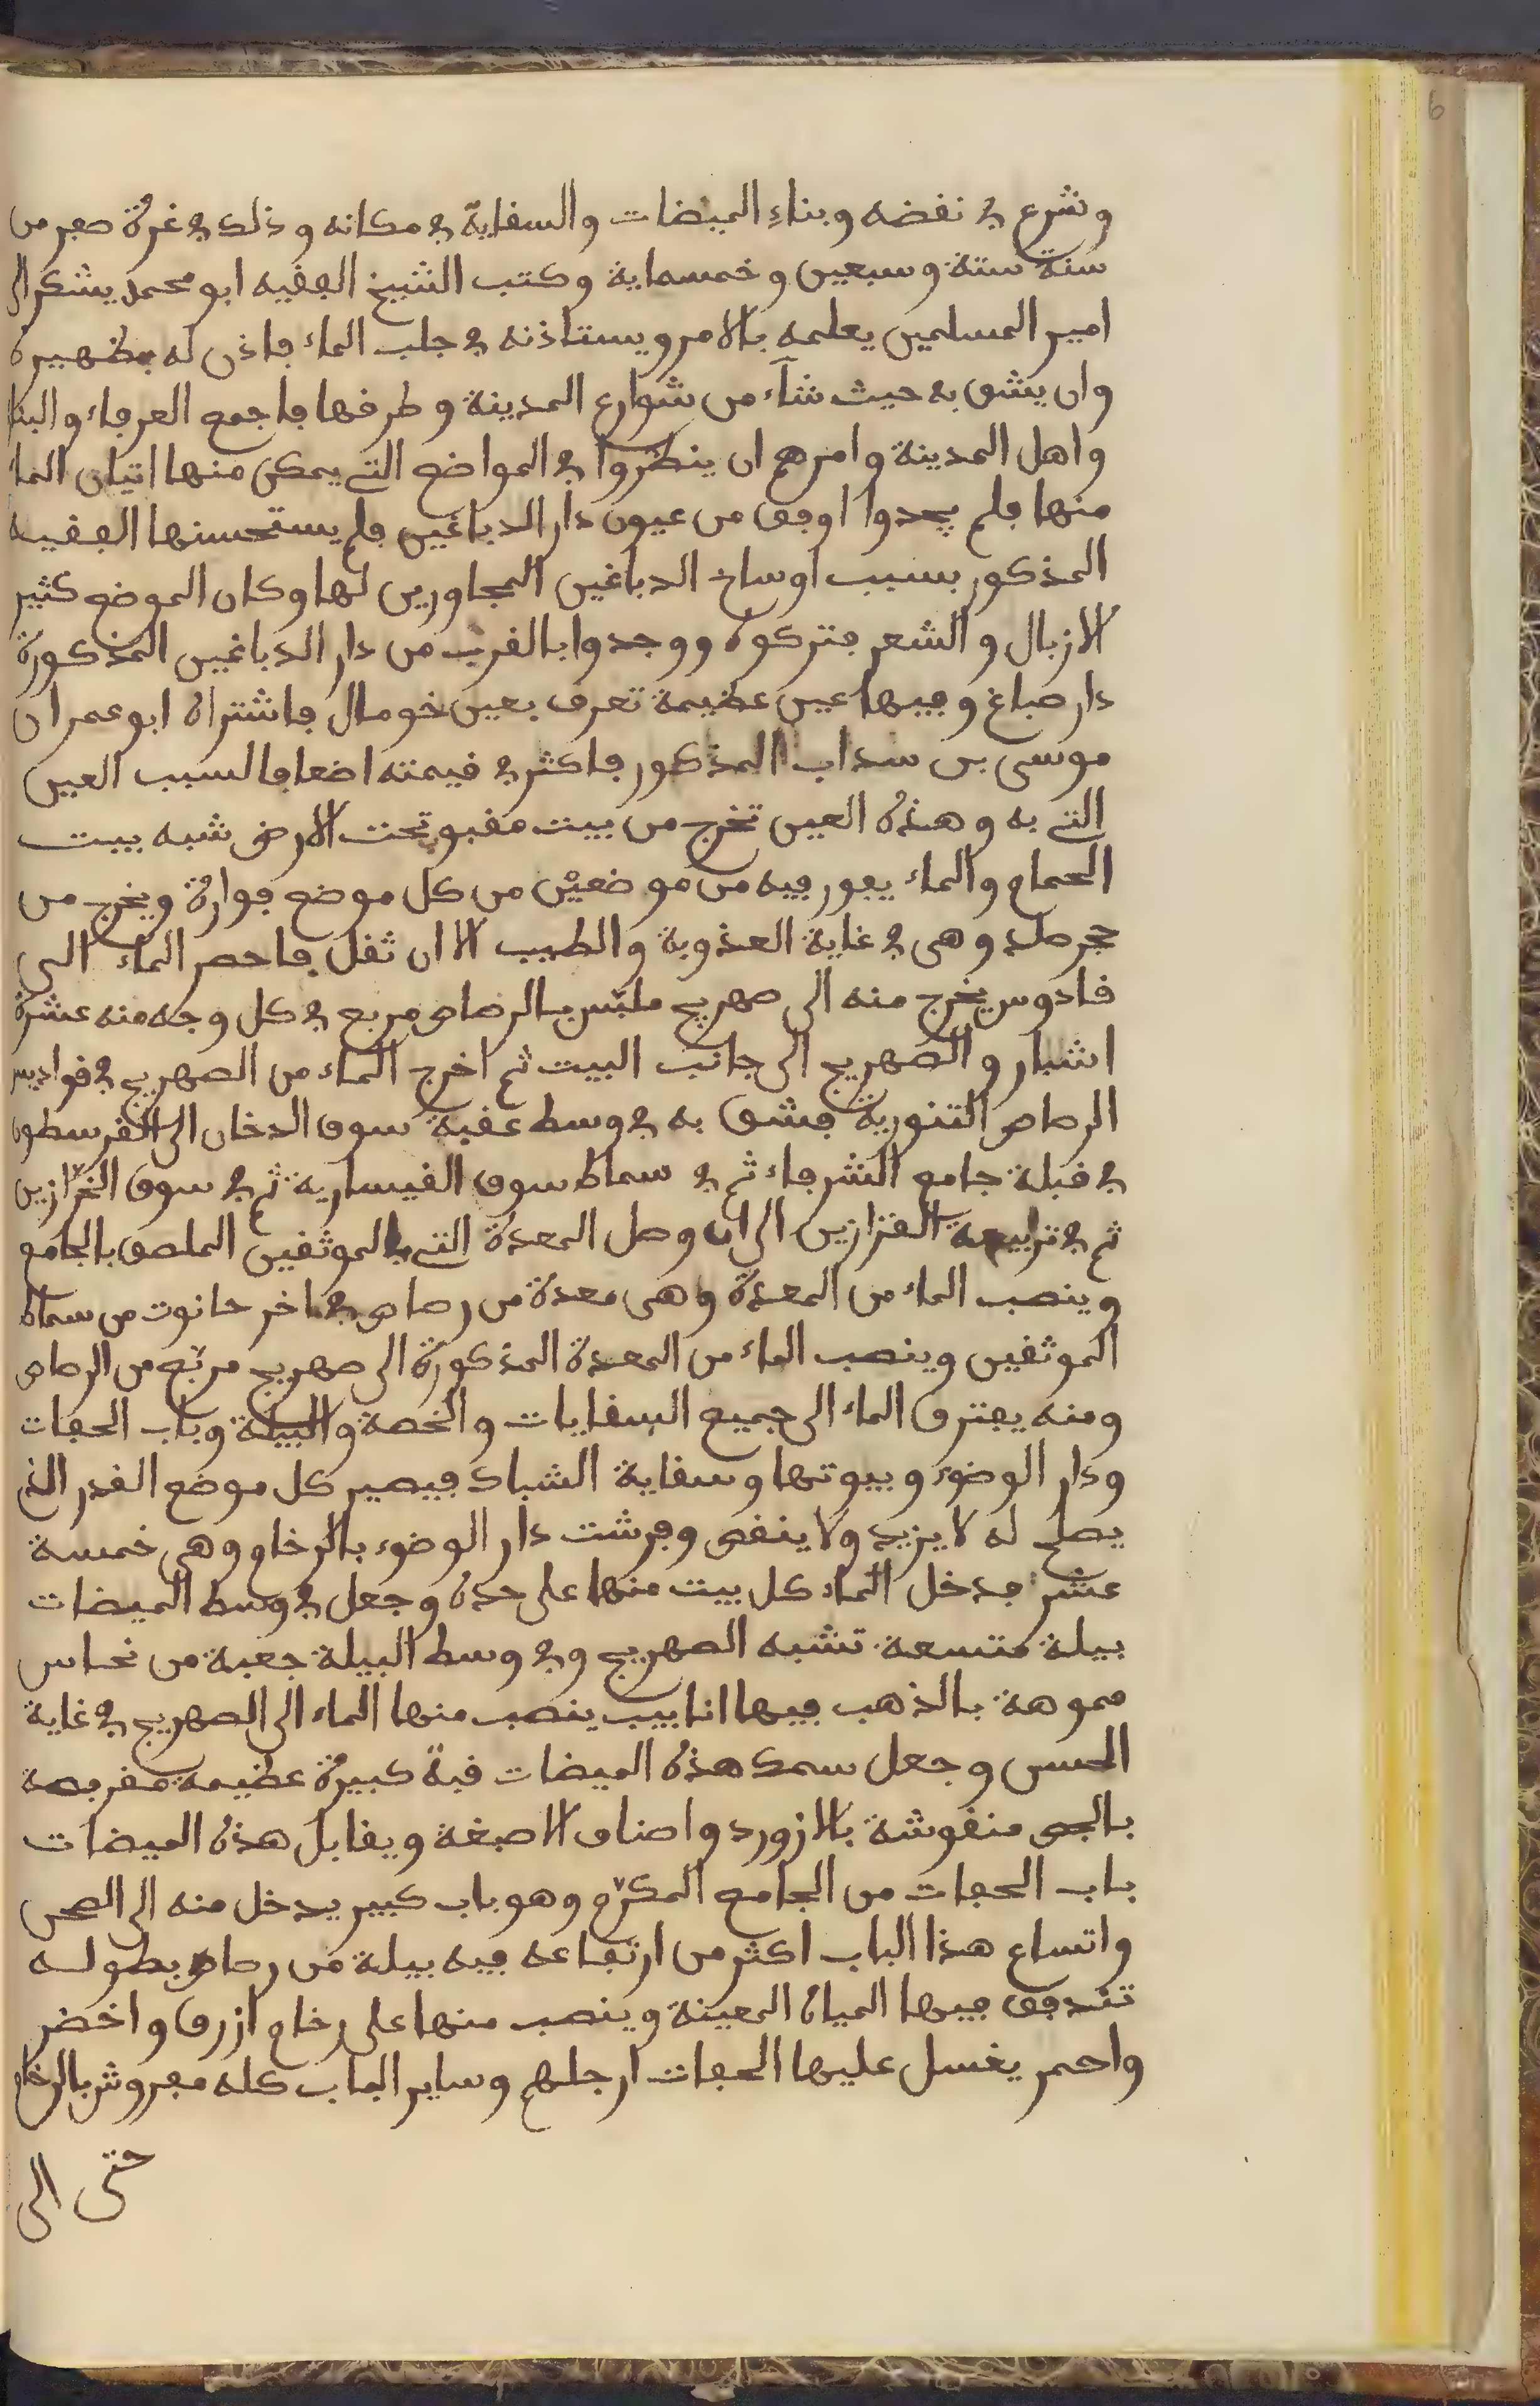 وشرع في نقضه وبناء الميضات والسقاية في مكانه وذلك في غرة صفر من
سنة ستة وسبعين وخمسماية وكتب الشيخ الفقيه ابو محمد يشكر الى
امير المسلمين يعلمه بالامر ويستاذنه في جلب الماء فاذن له بظهيره
وان يشق به حيث شاء من شوارع المدينة وطرقها فاجمع العرفاء والبنا
واهل المدينة وامرهم ان ينظروا في المواضع التي يمكن منها اتيان الما
منها فلم يجدوا اوفق من عيون دار الدباغين فلم يستحسنها الفقيه
المذكور بسبب اوساخ الدباغين المجاورين لها وكان الموضع كثير
الازبال والشعر فتركوه ووجدوا بالقرب من دار الدباغين المذكورة
دار صباغ وفيها عين عظيمة تعرف بعين خومال فاشتراه ابو عمران
موسى بن سداب المذكور فاكثر في قيمته اضعافا لسبب العين
التي به وهذه العين تخرج من بيت مقبو تحت الارض شبه بيت
الحمام والماء يفور فيه من موضعين من كل موضع فوارة ويخرج من
حجر صلد وهي في غاية العذوبة والطيب الا ان ثقل فاحصر الماء الى
قادوس يخرج منه الى صهريج ملبس بالرصاص مربع في كل وجه منه عشرة
اشبار والصهريج الى جانب البيت ثم اخرج الماء من الصهريج في قواديس
الرصاص التنورية فشق به في وسط عقبة سوق الدخان الى القرسطون
في قبلة جامع الشرفاء ثم في سماط سوق القيسارية ثم في سوق الخرازين
ثم في تربيعة القزازين الى ان وصل المعدة التي بالموثقين الملصق بالجامع
وينصب الماء من المعدة وهي معدة من رصاص في اخر حانوت من سماط
الموثقين وينصب الماء من المعدة المذكورة الى صهريج مربع من الرصاص
ومنه يفترق الماء الى جميع السقايات والخصة والبيلة وباب الحفات
ودار الوضوء وبيوتها وسقاية الشباك فيصير كل موضع القدر الذي
يصلح له لا يزيد ولا ينقص وفرشت دار الوضوء بالرخام وهي خمسة
عشر فدخل الماء كل بيت منها على حده وجعل في وسط الميضات
بيلة متسعة تشبه الصهريج وفي وسط البيلة جعبة من نحاس
مموهة بالذهب فيها انابيب ينصب منها الماء الى الصهريج في غاية
الحسن وجعل سمك هذه الميضات قبة كبيرة عظيمة مقربصة
بالجص منقوشة بالازورد واصناف الاصبغة ويقابل هذه الميضات
باب الحفات من الجامع المكرم وهو باب كبير يدخل منه الى الصحن
واتساع هذا الباب اكثر من ارتفاعه فيه بيلة من رصاص بطوله
تتدفق فيها المياه المعينة وينصب منها على رخام ازرق واخضر
واحمر يغسل عليها الحفات ارجلهم وساير الباب كله مفروش بالرخام
حتى الى
6